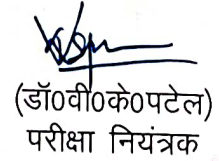 (डॉ0वी0के0पटेल)
परीक्षा नियंत्रक